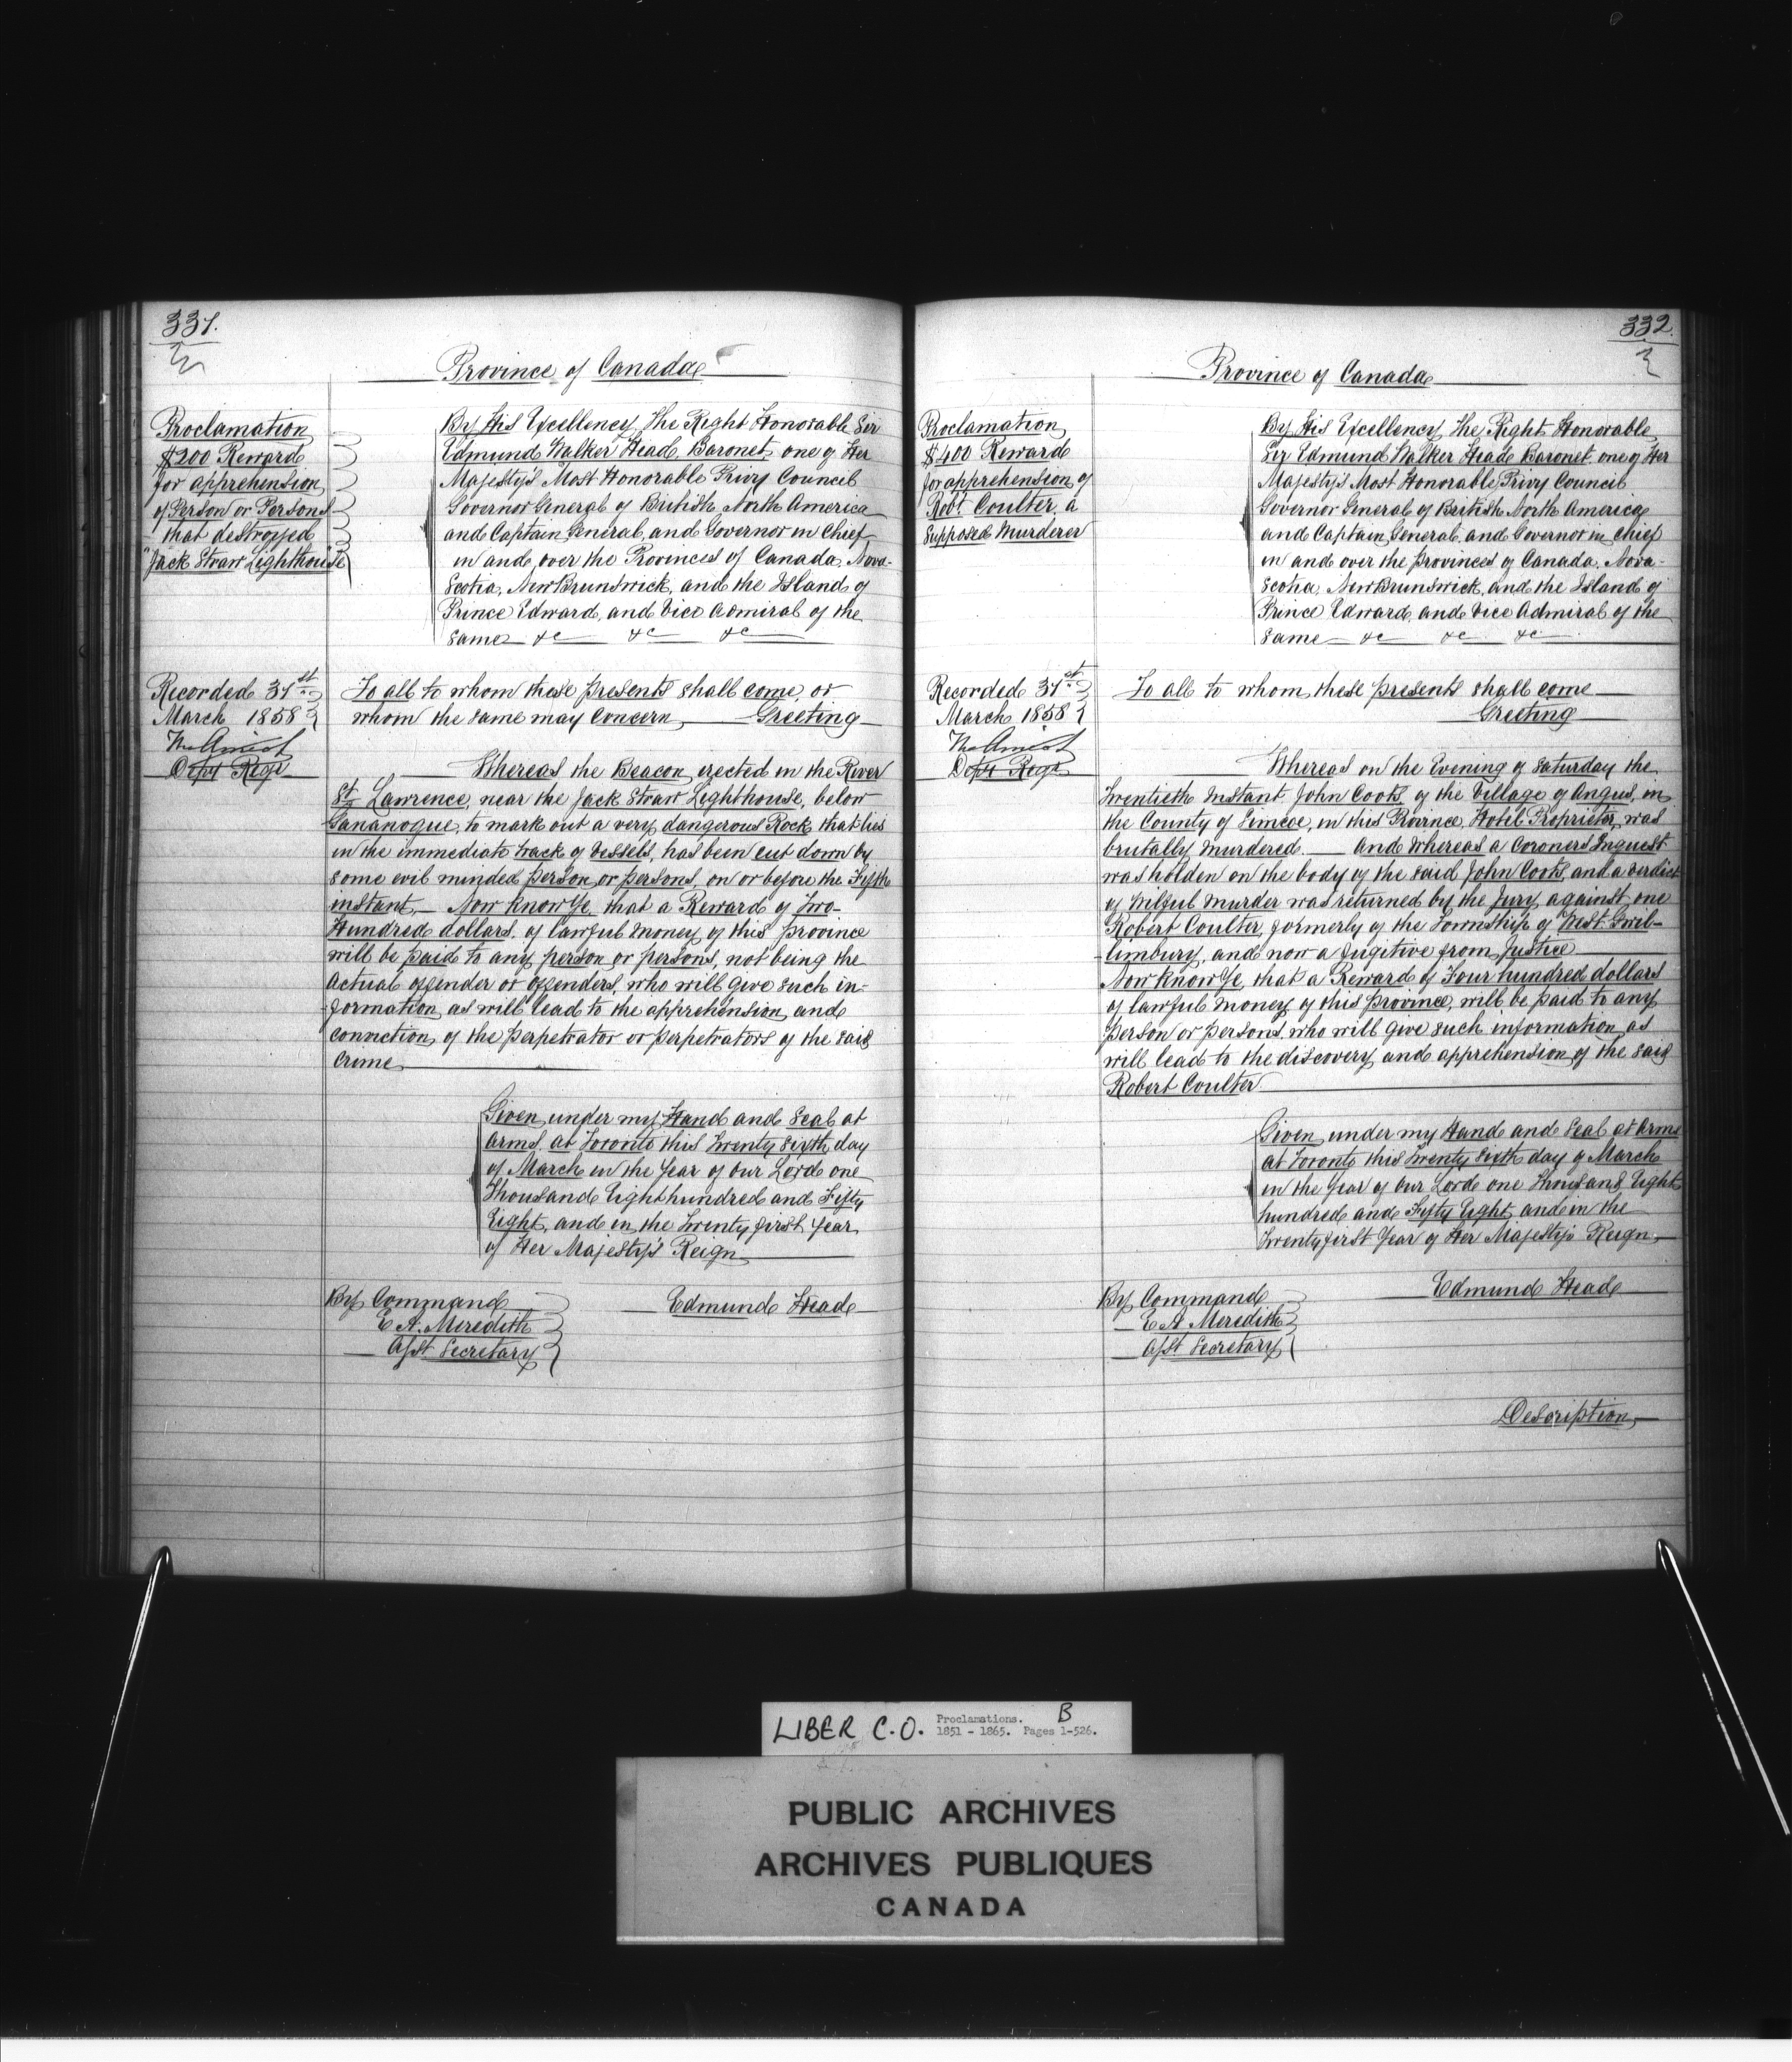 331.
Province of Canada
Proclamation
$200 Reward
for apprehension
of Person or Persons
that destroyed
"Jack Straw Lighthouse"
By His Excellency, The Right Honorable Sir
Edmund Walker Head, Baronet, one of Her
Majesty's Most Honorable Privy Council
Governor General of British North America
and Captain General, and Governor in Chief
in and over the Provinces of Canada, Nova-
Scotia, New Brunswick, and the Island of
Prince Edward, and Vice Admiral of the
same &c &c &c
Recorded 31st
March 1858
Depy Regr
To all to whom these presents shall come, or
whom the same may Concern, Greeting
Whereas the Beacon erected in the River
St Lawrence, near the Jack Straw Lighthouse, below
Gananoque, to mark out a very dangerous Rock, that lies
in the immediate track of Vessels, has been cut down by
some evil minded person or persons, on or before the Fifth
instant,— Now Know Ye, that a Reward of Two-
Hundred dollars, of lawful money of this province
will be paid to any person or persons, not being the
actual offender or offenders, who will give such in-
formation as will lead to the apprehension and
conviction, of the perpetrator or perpetrators of the said
Crime
Given under my Hand and Seal at
Arms, at Toronto this Twenty Sixth day
of March in the Year of our Lord one
Thousand Eight hundred and Fifty
Eight, and in the Twenty first Year,
of Her Majesty's Reign
By Command
E A. Meredith
Asst Secretary
Edmund Head
332.
Province of Canada
Proclamation
$400 Reward
for apprehension of
Robt Coulter, a
supposed Murderer
By His Excellency, The Right Honorable
Sir Edmund Walker Head Baronet one of Her
Majesty's Most Honorable Privy Council
Governor General of British North America
and Captain General and Governor in Chief
in and over the provinces of Canada, Nova-
Scotia, New Brunswick, and the Island of
Prince Edward, and Vice Admiral of the
same &c &c &c
Recorded 31st
March 1858
Depy Regr
To all to whom these presents shall come
Greeting
Whereas on the Evening of Saturday the
Twentieth Instant John Coots, of the Village of Angus, in
the County of Simcoe, in this Province, Hotel Proprietor, was
brutally murdered.— and Whereas a Coroners Inquest
was holden on the body of the said John Coots, and a verdict
of Wilful Murder was returned by the Jury, against one
Robert Coulter, formerly of the Township of West Gwil-
limbury, and now a fugitive from Justice
Now Know Ye, that a Reward of Four hundred dollars
of lawful money of this Province, will be paid to any
person or persons who will give such information as
will lead to the discovery and apprehension of the said
Robert Coulter.
Given under my Hand and Seal at Arms
at Toronto this Twenty Sixth day of March
in the Year of our Lord one Thousand Eight
hundred and Fifty Eight, and in the
Twenty first Year of Her Majesty's Reign
By Command
E A Meredith
Asst Secretary
Edmund Head
Description
LIBER C.O. Proclamations. B
1851 - 1865. Pages 1-526.
PUBLIC ARCHIVES
ARCHIVES PUBLIQUES
CANADA